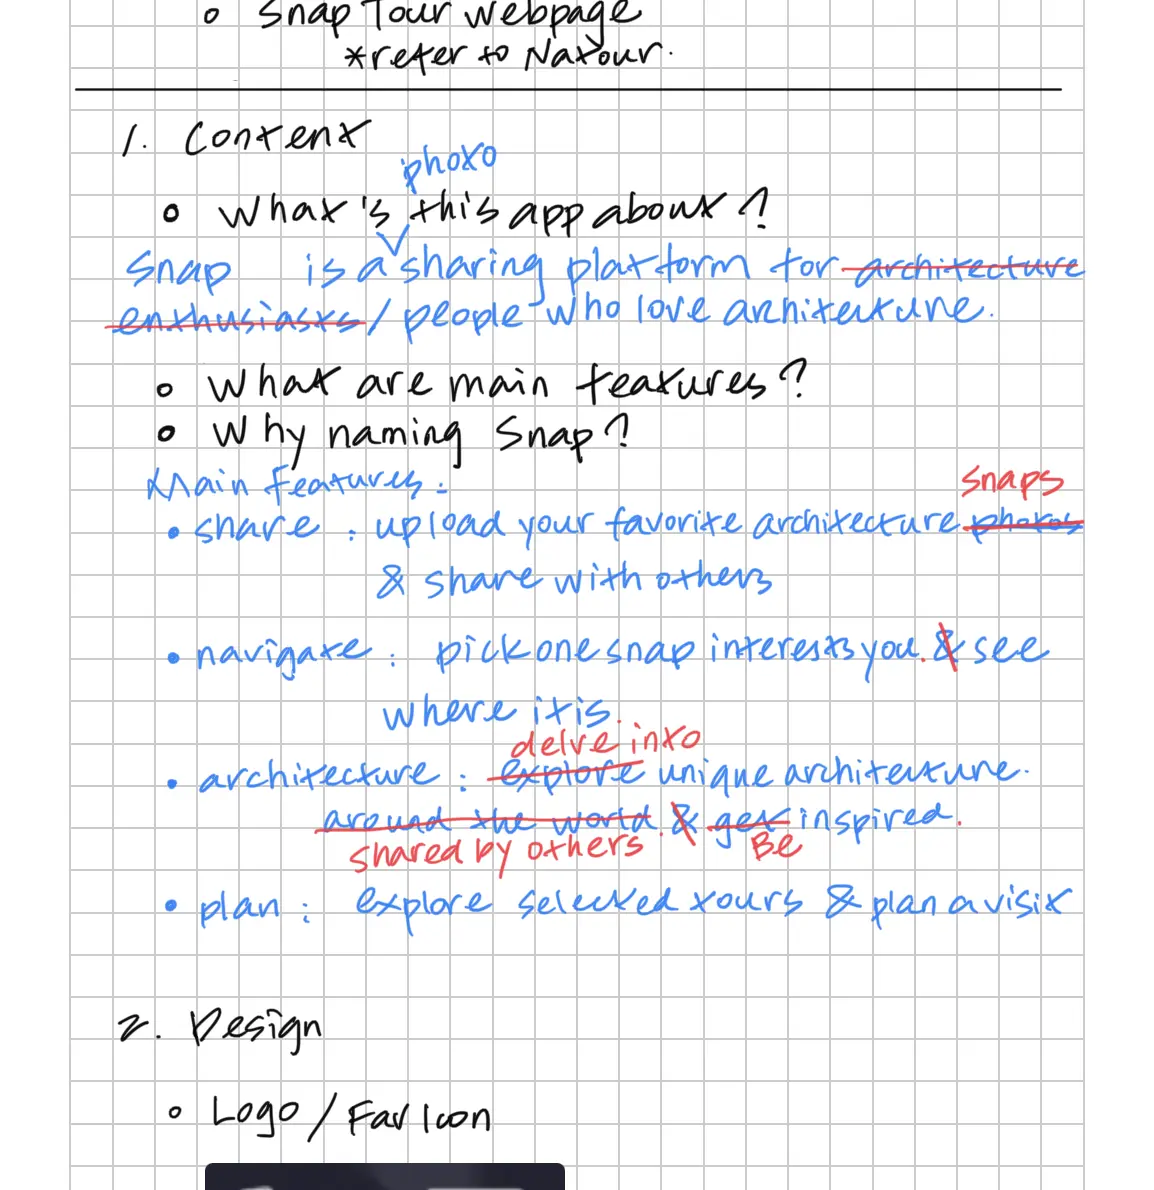 o Snap Tour Webpage
*refer to Natour.
1. Content
photo
o What's this app about?
Snap is a sharing platform for architecture
enthusiasts / people who love architecture.
o What are main features?
o Why naming Snap?
Main features:
snaps
• share : upload your favorite architecture photos
& share with others
• navigate : pick one snap interests you. & see
where it is.
delve into
• architecture : explore unique architecture.
around the world. & get inspired.
shared by others Be
• plan : explore selected tours & plan a visit
2. Design
o Logo / FavIcon